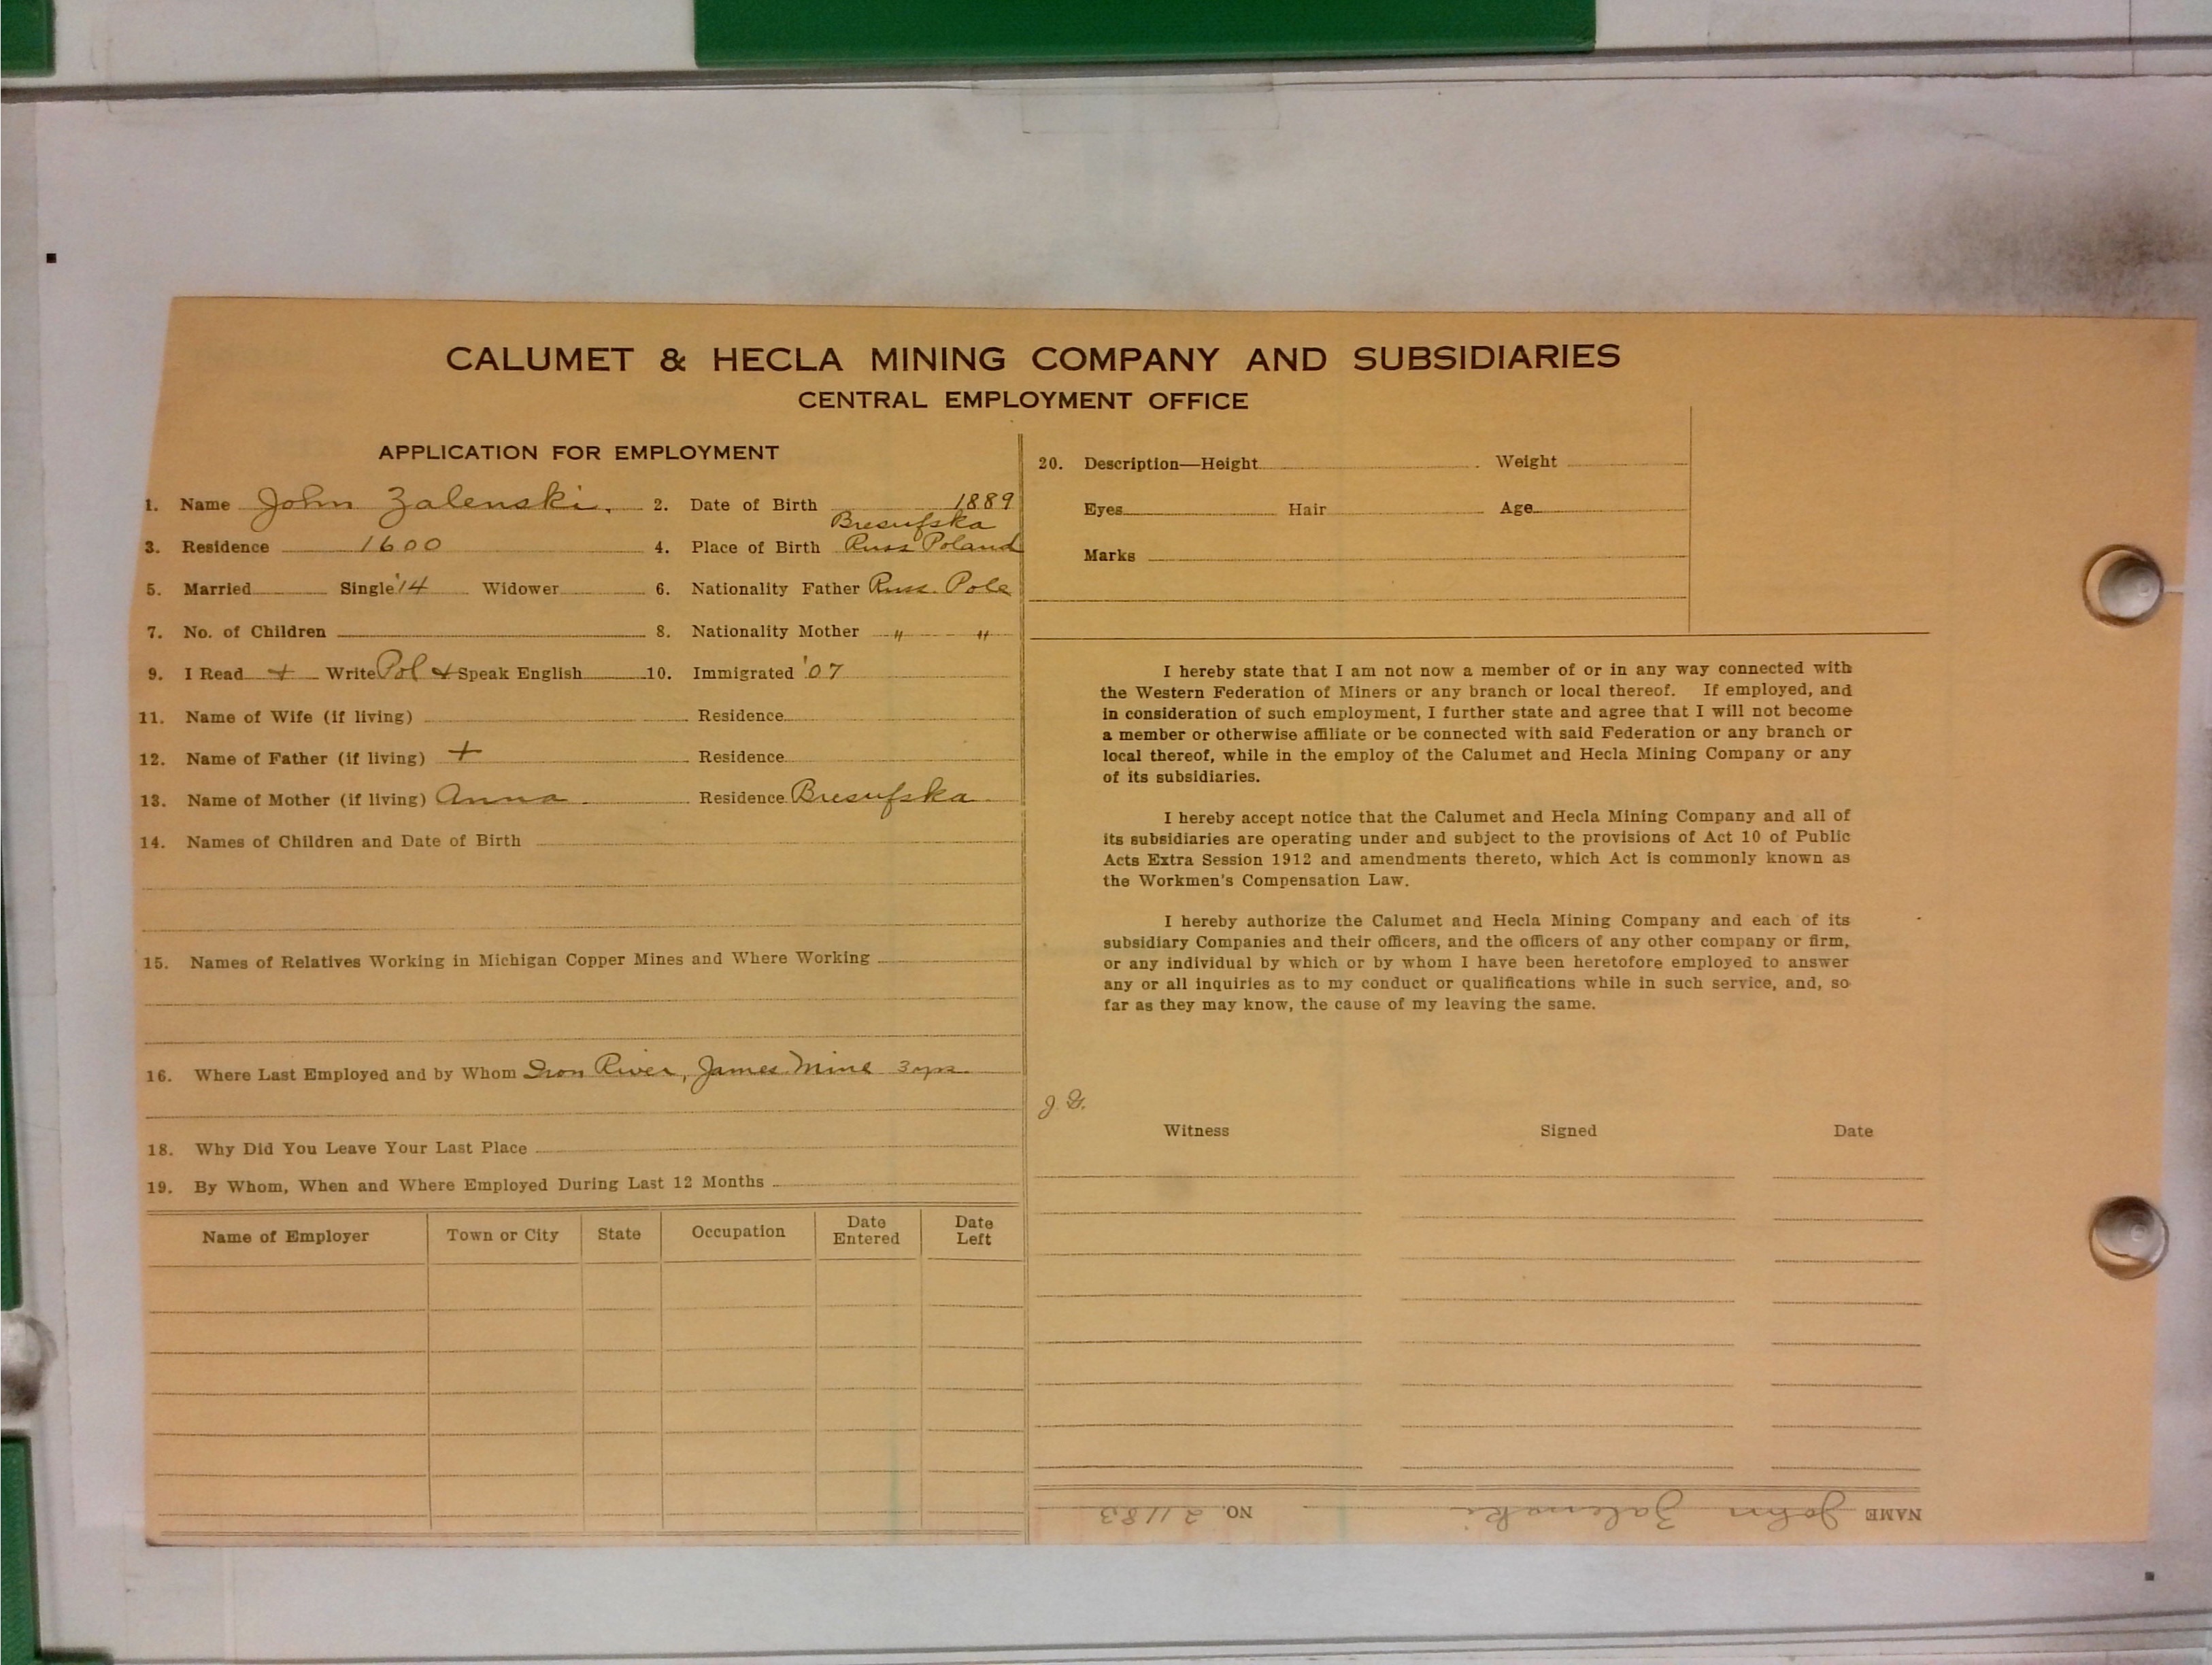 CALUMET & HECLA MINING COMPANY AND SUBSIDIARIES
CENTRAL EMPLOYMENT OFFICE
APPLICATION FOR EMPLOYMENT
1. Name John Zalenski. 2. Date of Birth 1889
Bresufska
3. Residence 1600 4. Place of Birth Russ Poland
5. Married Single '14 Widower 6. Nationality Father Russ. Pole
7. No. of Children 8. Nationality Mother " "
9. I Read + Write Pol + Speak English 10. Immigrated '07
11. Name of Wife (if living) Residence
12. Name of Father (if living) + Residence
13. Name of Mother (if living) Anna Residence Bresufska
14. Names of Children and Date of Birth
15. Names of Relatives Working in Michigan Copper Mines and Where Working
16. Where Last Employed and by Whom Iron River, James Mine 3 yrs.
18. Why Did You Leave Your Last Place
19. By Whom, When and Where Employed During Last 12 Months
Name of Employer Town or City State Occupation Date Entered Date Left
20. Description—Height Weight
Eyes Hair Age
Marks
I hereby state that I am not now a member of or in any way connected with
the Western Federation of Miners or any branch or local thereof. If employed, and
in consideration of such employment, I further state and agree that I will not become
a member or otherwise affiliate or be connected with said Federation or any branch or
local thereof, while in the employ of the Calumet and Hecla Mining Company or any
of its subsidiaries.
I hereby accept notice that the Calumet and Hecla Mining Company and all of
its subsidiaries are operating under and subject to the provisions of Act 10 of Public
Acts Extra Session 1912 and amendments thereto, which Act is commonly known as
the Workmen's Compensation Law.
I hereby authorize the Calumet and Hecla Mining Company and each of its
subsidiary Companies and their officers, and the officers of any other company or firm,
or any individual by which or by whom I have been heretofore employed to answer
any or all inquiries as to my conduct or qualifications while in such service, and, so
far as they may know, the cause of my leaving the same.
J. G.
Witness Signed Date
NAME John Zalenski NO. 21183